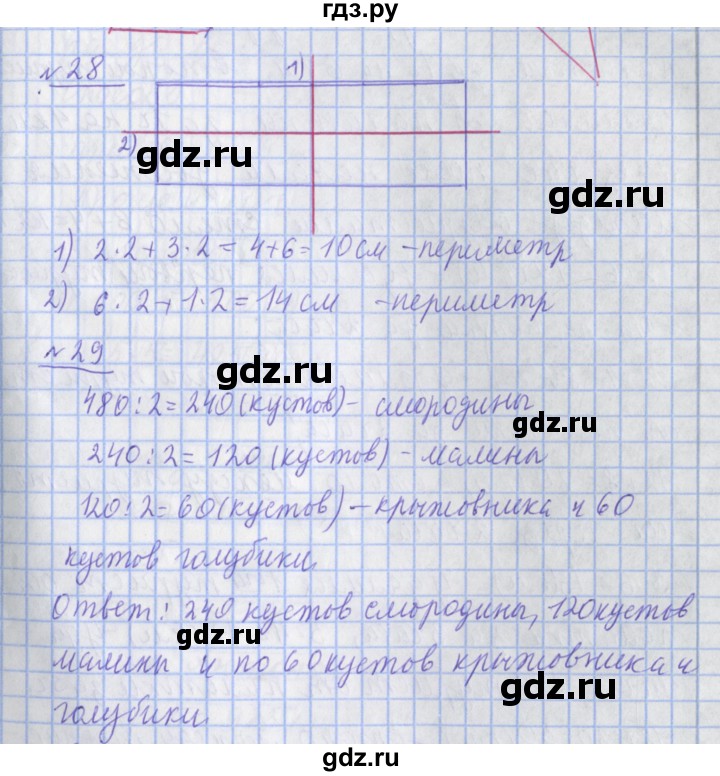 гдз.ру
№28
1)
2)
gdz.ru
gdz.ru
1) 2·2+3·2=4+6=10 см -периметр
2) 6·2+1·2=14 см -периметр
gdz.ru
№29
gdz.ru
480:2=240(кустов)- смородины
240:2=120(кустов)-малины
120:2=60(кустов)-крыжовника и 60
кустов голубики
Ответ: 240 кустов смородины, 120 кустов
gdz.ru
малины и по 60 кустов крыжовника и
gdz.ru
голубики
gdz.ru